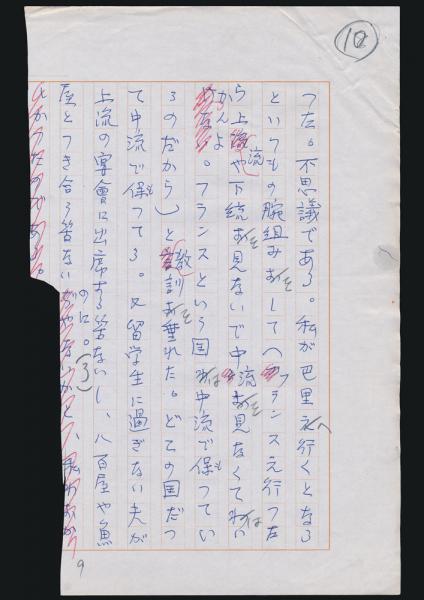 ⑩
つた。不思議である。私が巴里へ行くとなる
といつもの腕組みをして「フランスえ行つた
ら上流や下流を見ないで中流を見なくてはい
かんよ。フランスという国は中流で保つてい
るのだから」と教訓を垂れた。どこの国だつ
て中流で保つてる。又留学生に過ぎない夫が
上流の宴會に出席する筈ないし、八百屋や魚
屋とつき合う筈ないのに。(3)
9